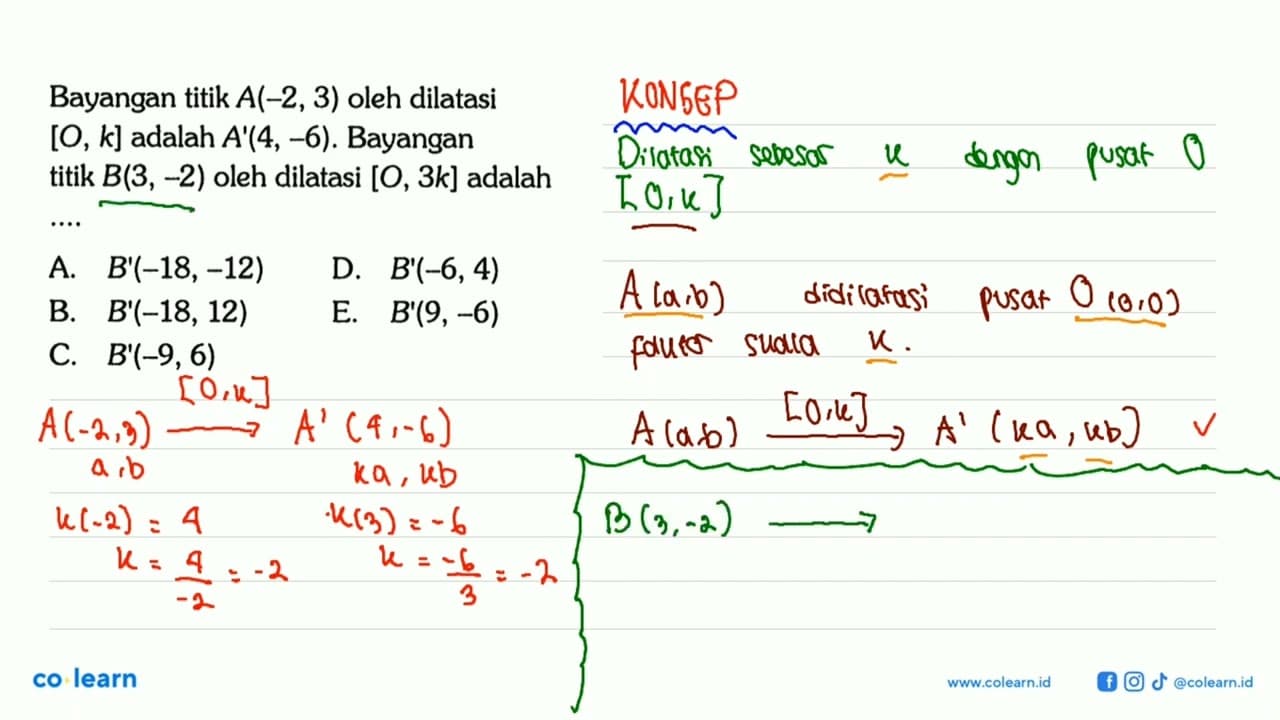 Bayangan titik A(–2, 3) oleh dilatasi
[O, k] adalah A'(4, –6). Bayangan
titik B(3, –2) oleh dilatasi [O, 3k] adalah
....
A. B'(–18, –12) D. B'(–6, 4)
B. B'(–18, 12) E. B'(9, –6)
C. B'(–9, 6)
[O,k]
A(-2,3) → A' (4,-6)
a,b ka, kb
k(-2) = 4 k(3) = -6
k = 4/-2 = -2 k = -6/3 = -2
KONSEP
Dilatasi sebesar k dengan pusat O
[O,k]
A(a,b) didilatasi pusat O(0,0)
faktor skala k.
A(a,b) [O,k] → A' (ka, kb) ✓
B(3,-2) →
co learn
www.colearn.id @colearn.id